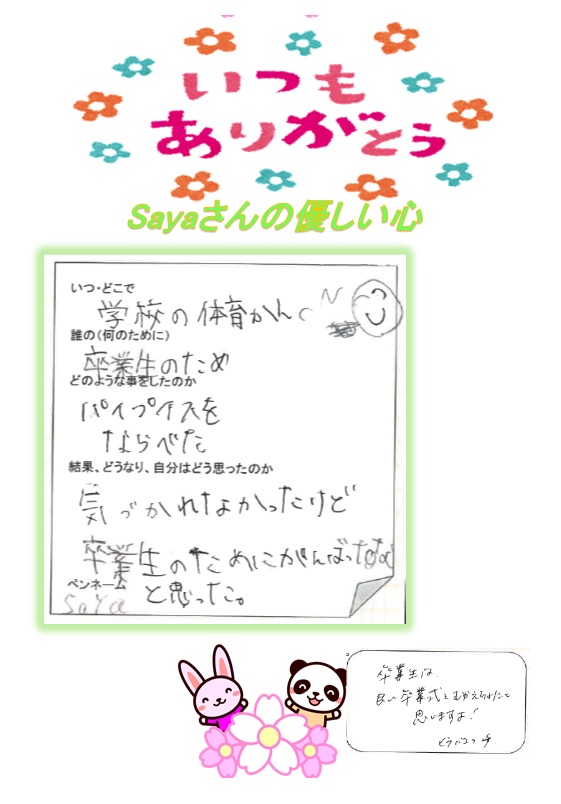 いつも
ありがとう
Sayaさんの優しい心
いつ・どこで
学校の体育かん
誰の(何のために)
卒業生のため
どのような事をしたのか
パイプイスを
ならべた
結果、どうなり、自分はどう思ったのか
気づかれなかったけど
卒業生のためにがんばったな
ペンネーム
と思った。
saya
卒業生は、
良い卒業式をむかえられたと
思いますよ!